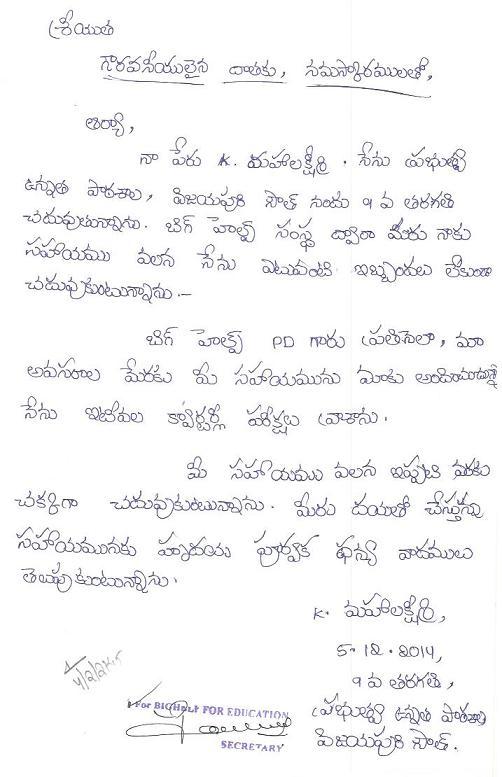 శ్రీయుత
గౌరవనీయులైన దాతకు, నమస్కారములతో,
ఆర్యా,
నా పేరు K. మహాలక్ష్మి. నేను ప్రభుత్వ
ఉన్నత పాఠశాల, విజయపురి సౌత్ నందు 9 వ తరగతి
చదువుతున్నాను. బిగ్ హెల్ప్ సంస్థ ద్వారా మీరు నాకు
సహాయము వలన నేను ఎటువంటి ఇబ్బందులు లేకుండా
చదువుకుంటున్నాను.-
బిగ్ హెల్ప్ PD గారు ప్రతినెలా, మా
అవసరాల మేరకు మీ సహాయమును మాకు
నేను ఇటీవల క్వార్టర్లీ పరీక్షలు వ్రాశాను.
మీ సహాయము వలన ఇప్పటి వరకు
చక్కగా చదువుకుంటున్నాను. మీరు దయతో చేస్తున్న
సహాయమునకు హృదయ పూర్వక ధన్య వాదములు
తెలుపుకుంటున్నాను.
K. మహాలక్ష్మి,
5.12.2014,
9 వ తరగతి,
ప్రభుత్వ ఉన్నత పాఠశాల
విజయపురి సౌత్.
For BIGHELP FOR EDUCATION
SECRETARY